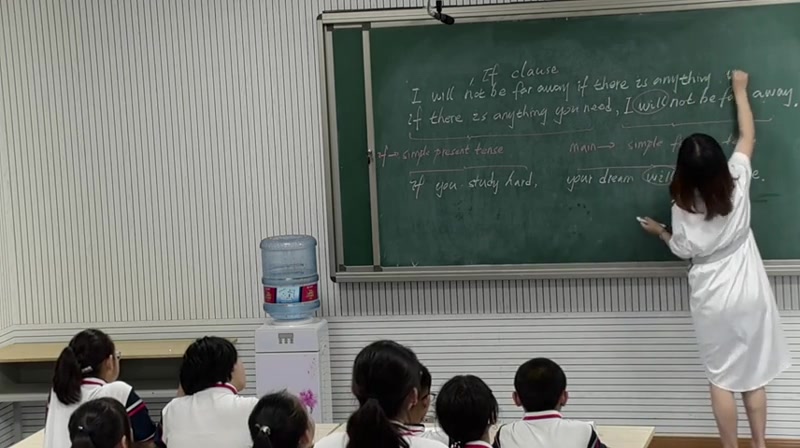 If clause
I will not be far away if there is anything
if there is anything you need, I will not be far away.
if → simple present tense main → simple
if you study hard, your dream will